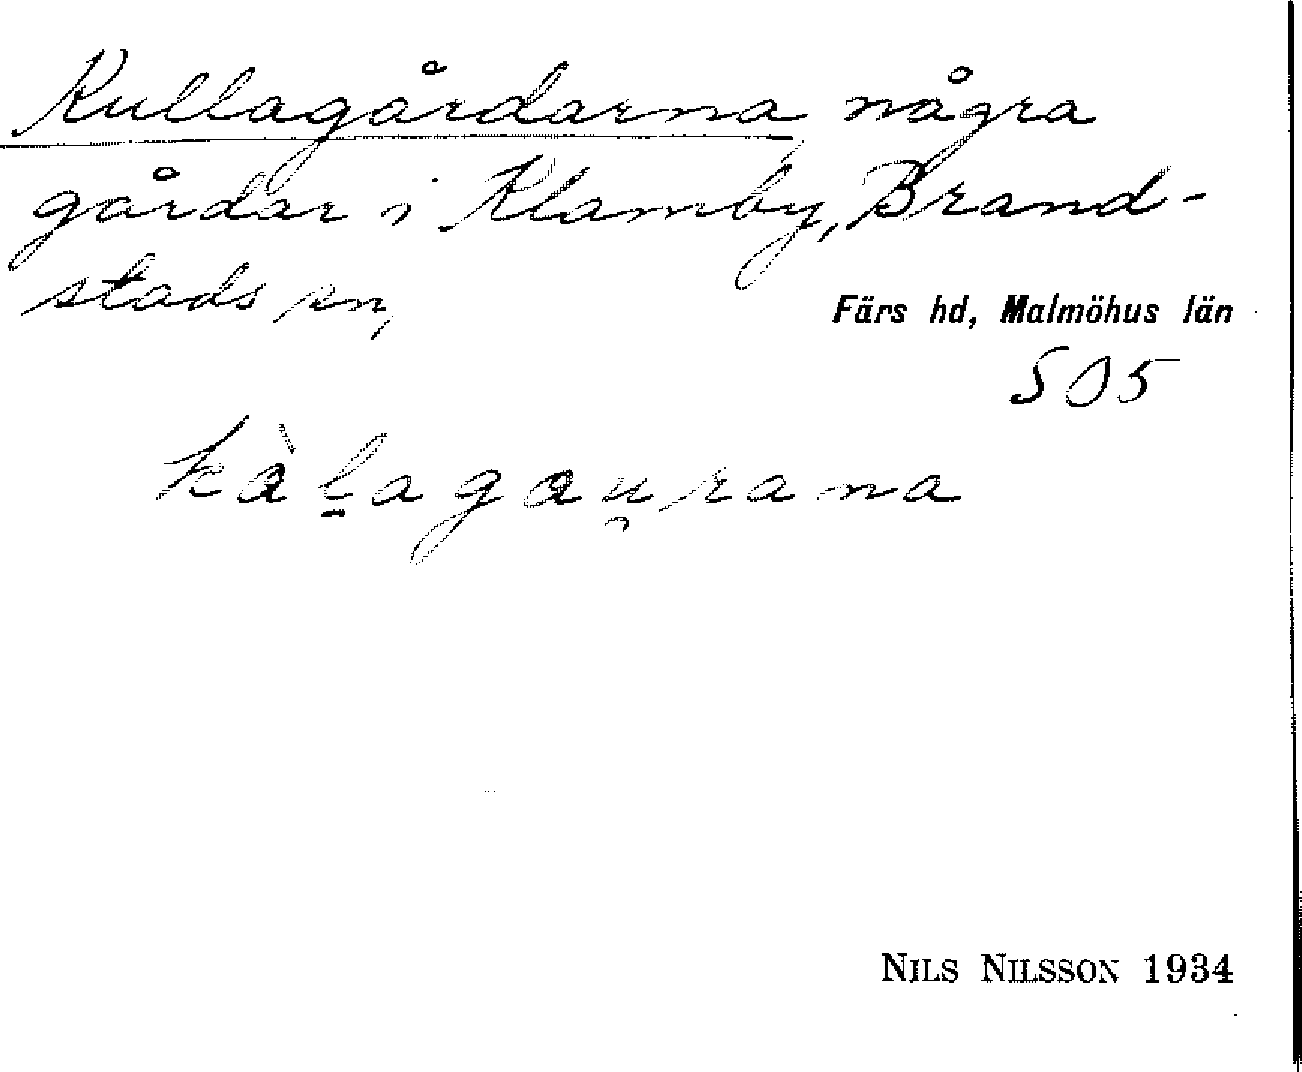 Kullagårdarna några
gårdar i Klamby, Brand-
stads sn,
Färs hd, Malmöhus län
S05
kàl̠agau̯rana
NILS NILSSON 1934